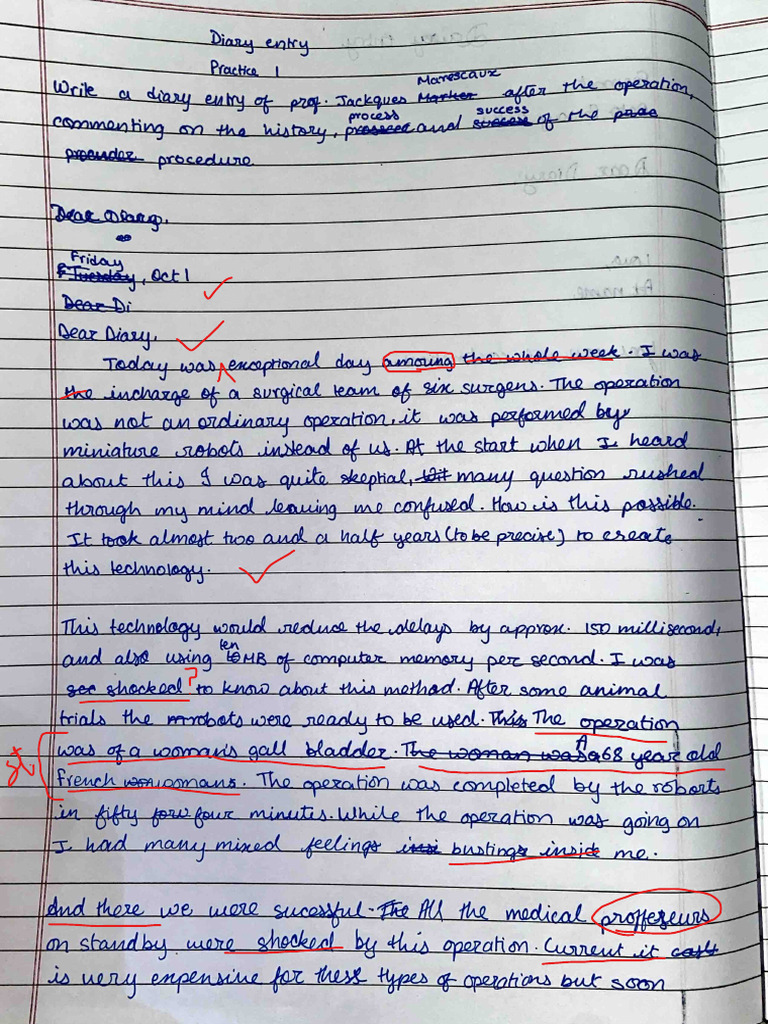 Diary entry
Practice 1
Marescaux
Write a diary entry of prof. Jackques Marker after the operation,
process success
commenting on the history, and of the
procedure
Dear Diary.
Friday
Tuesday, Oct 1
Dear Di
Dear Diary,
Today was exceptional day amoung the whole week. I was
the incharge of a surgical team of six surgens. The operation
was not an ordinary operation, it was performed by
miniature robots instead of us. At the start when I heard
about this I was quite skeptial, many question rushed
through my mind leaving me confused. How is this possible.
It took almost two and a half years (to be precise) to create
this technology.
This technology would reduce the delays by approx. 150 millisecond,
ten
and also using MB of computer memory per second. I was
shocked ? to know about this method. After some animal
trials the robots were ready to be used. This The operation
was of a woman's gall bladder. The woman was A 68 year old
st
french womans. The operation was completed by the roborts
in fifty four minutes. While the operation was going on
I had many mixed feelings busting inside me.
And there we were sucessful. The All the medical proffeseurs
on standby were shocked by this operation. Current it cost
is very expensive for these types of operations but soon